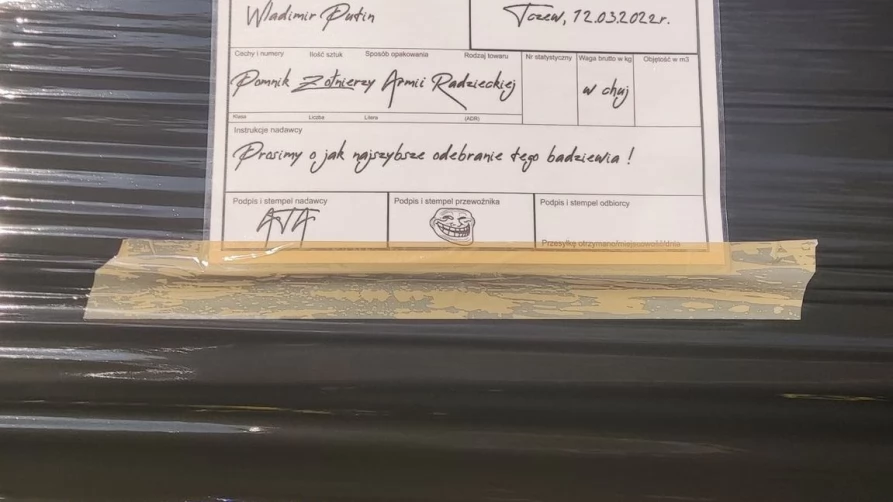 Wladimir Putin
Tczew, 12.03.2022r.
Cechy i numery Ilość sztuk Sposób opakowania Rodzaj towaru Nr statystyczny Waga brutto w kg Objętość w m3
Pomnik Żołnierzy Armii Radzieckiej
w chuj
Klasa Liczba Litera (ADR)
Instrukcje nadawcy
Prosimy o jak najszybsze odebranie tego badziewia !
Podpis i stempel nadawcy Podpis i stempel przewoźnika Podpis i stempel odbiorcy
Przesyłkę otrzymano/miejscowość/dnia